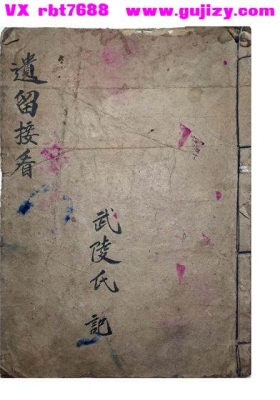 VX rbt7688 www.gujizy.com
遺留接看
武陵氏 記